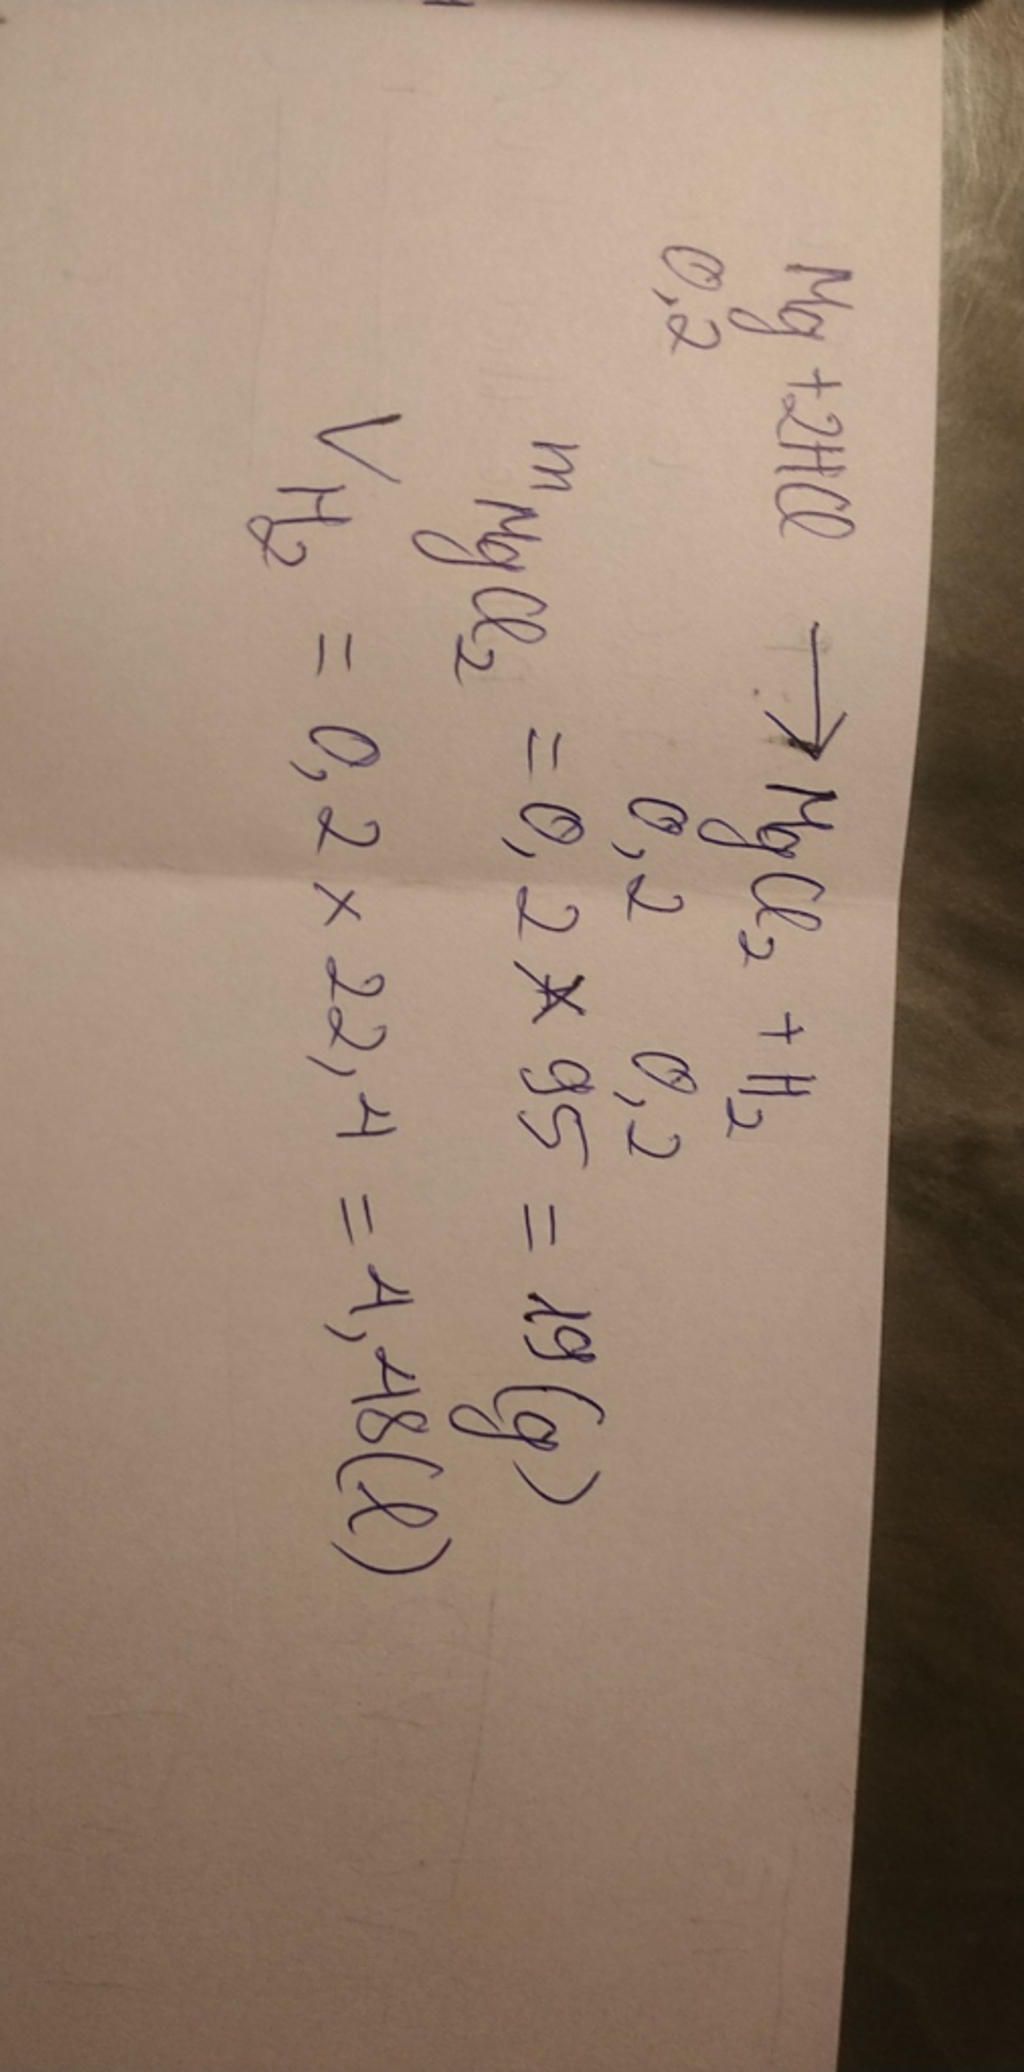 Mg + 2HCl → MgCl₂ + H₂
0,2 0,2 0,2
mMgCl₂ = 0,2 x 95 = 19 (g)
VH₂ = 0,2 x 22,4 = 4,48 (l)